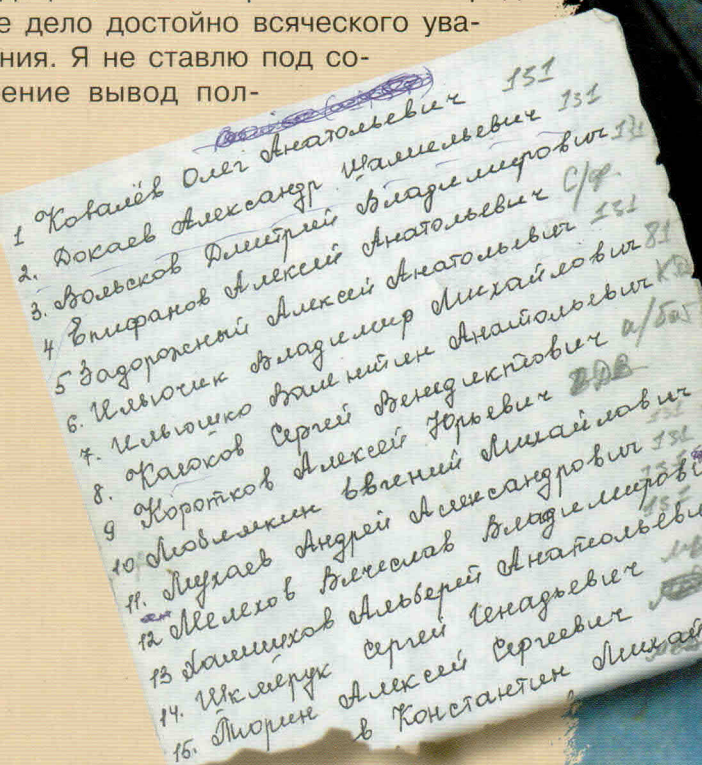 е дело достойно всяческого ува-
ния. Я не ставлю под со-
ение вывод пол-
1 Ковалёв Олег Анатольевич 131
2. Докаев Александр Шамильевич 131
3. Вольсков Дмитрий Владимирович 131
4 Епифанов Алексей Анатольевич с/р.
5 Задорожный Алексей Анатольевич 131
6. Ильючик Владимир Михайлович 81
7. Ильюшко Валентин Анатольевич
8. Каюков Сергей Венедиктович
9 Коротков Алексей Юрьевич ВДВ
10 Люблямкин Евгений Михайлович
11. Мухаев Андрей Александрович 131
12 Мелехов Вячеслав Владимирови
13 Альберт Анатольеви
14. Шкмерук Сергей Генадьевич
15. Тюрин Алексей Сергеевич
в Константин Михай